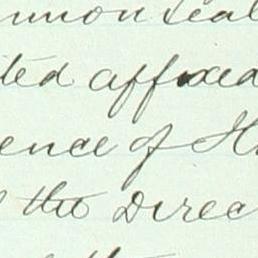 mmon Seal
ted affixed
ence of
the Direc
the